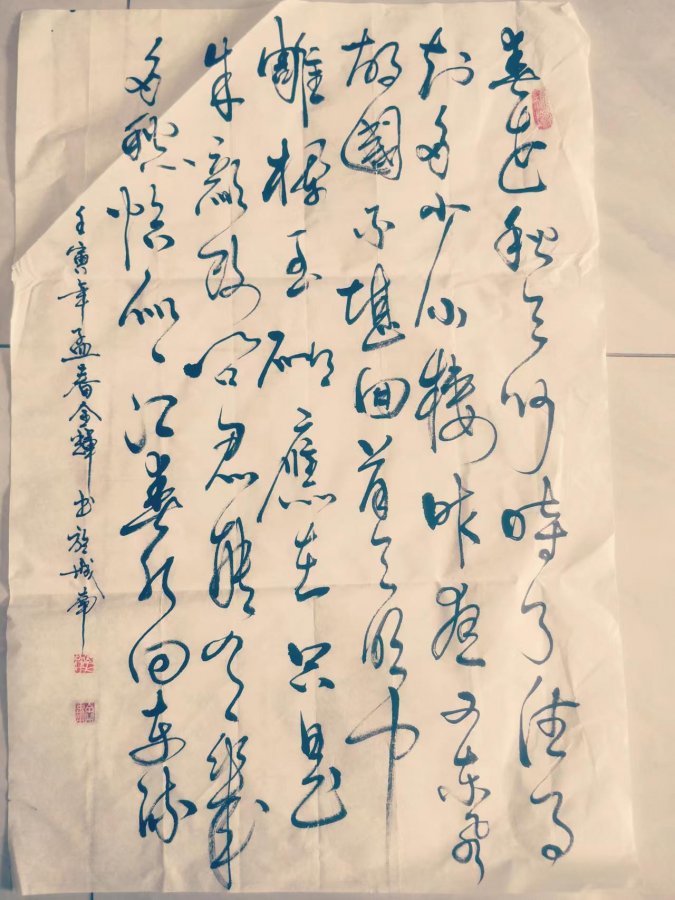 春花秋月何時了往事
知多少小樓昨夜又東風
故國不堪回首月明中
雕欄玉砌應在只是
朱顏改問君能有幾
多愁恰似一江春水向東流
壬寅年孟春金輝書於城南